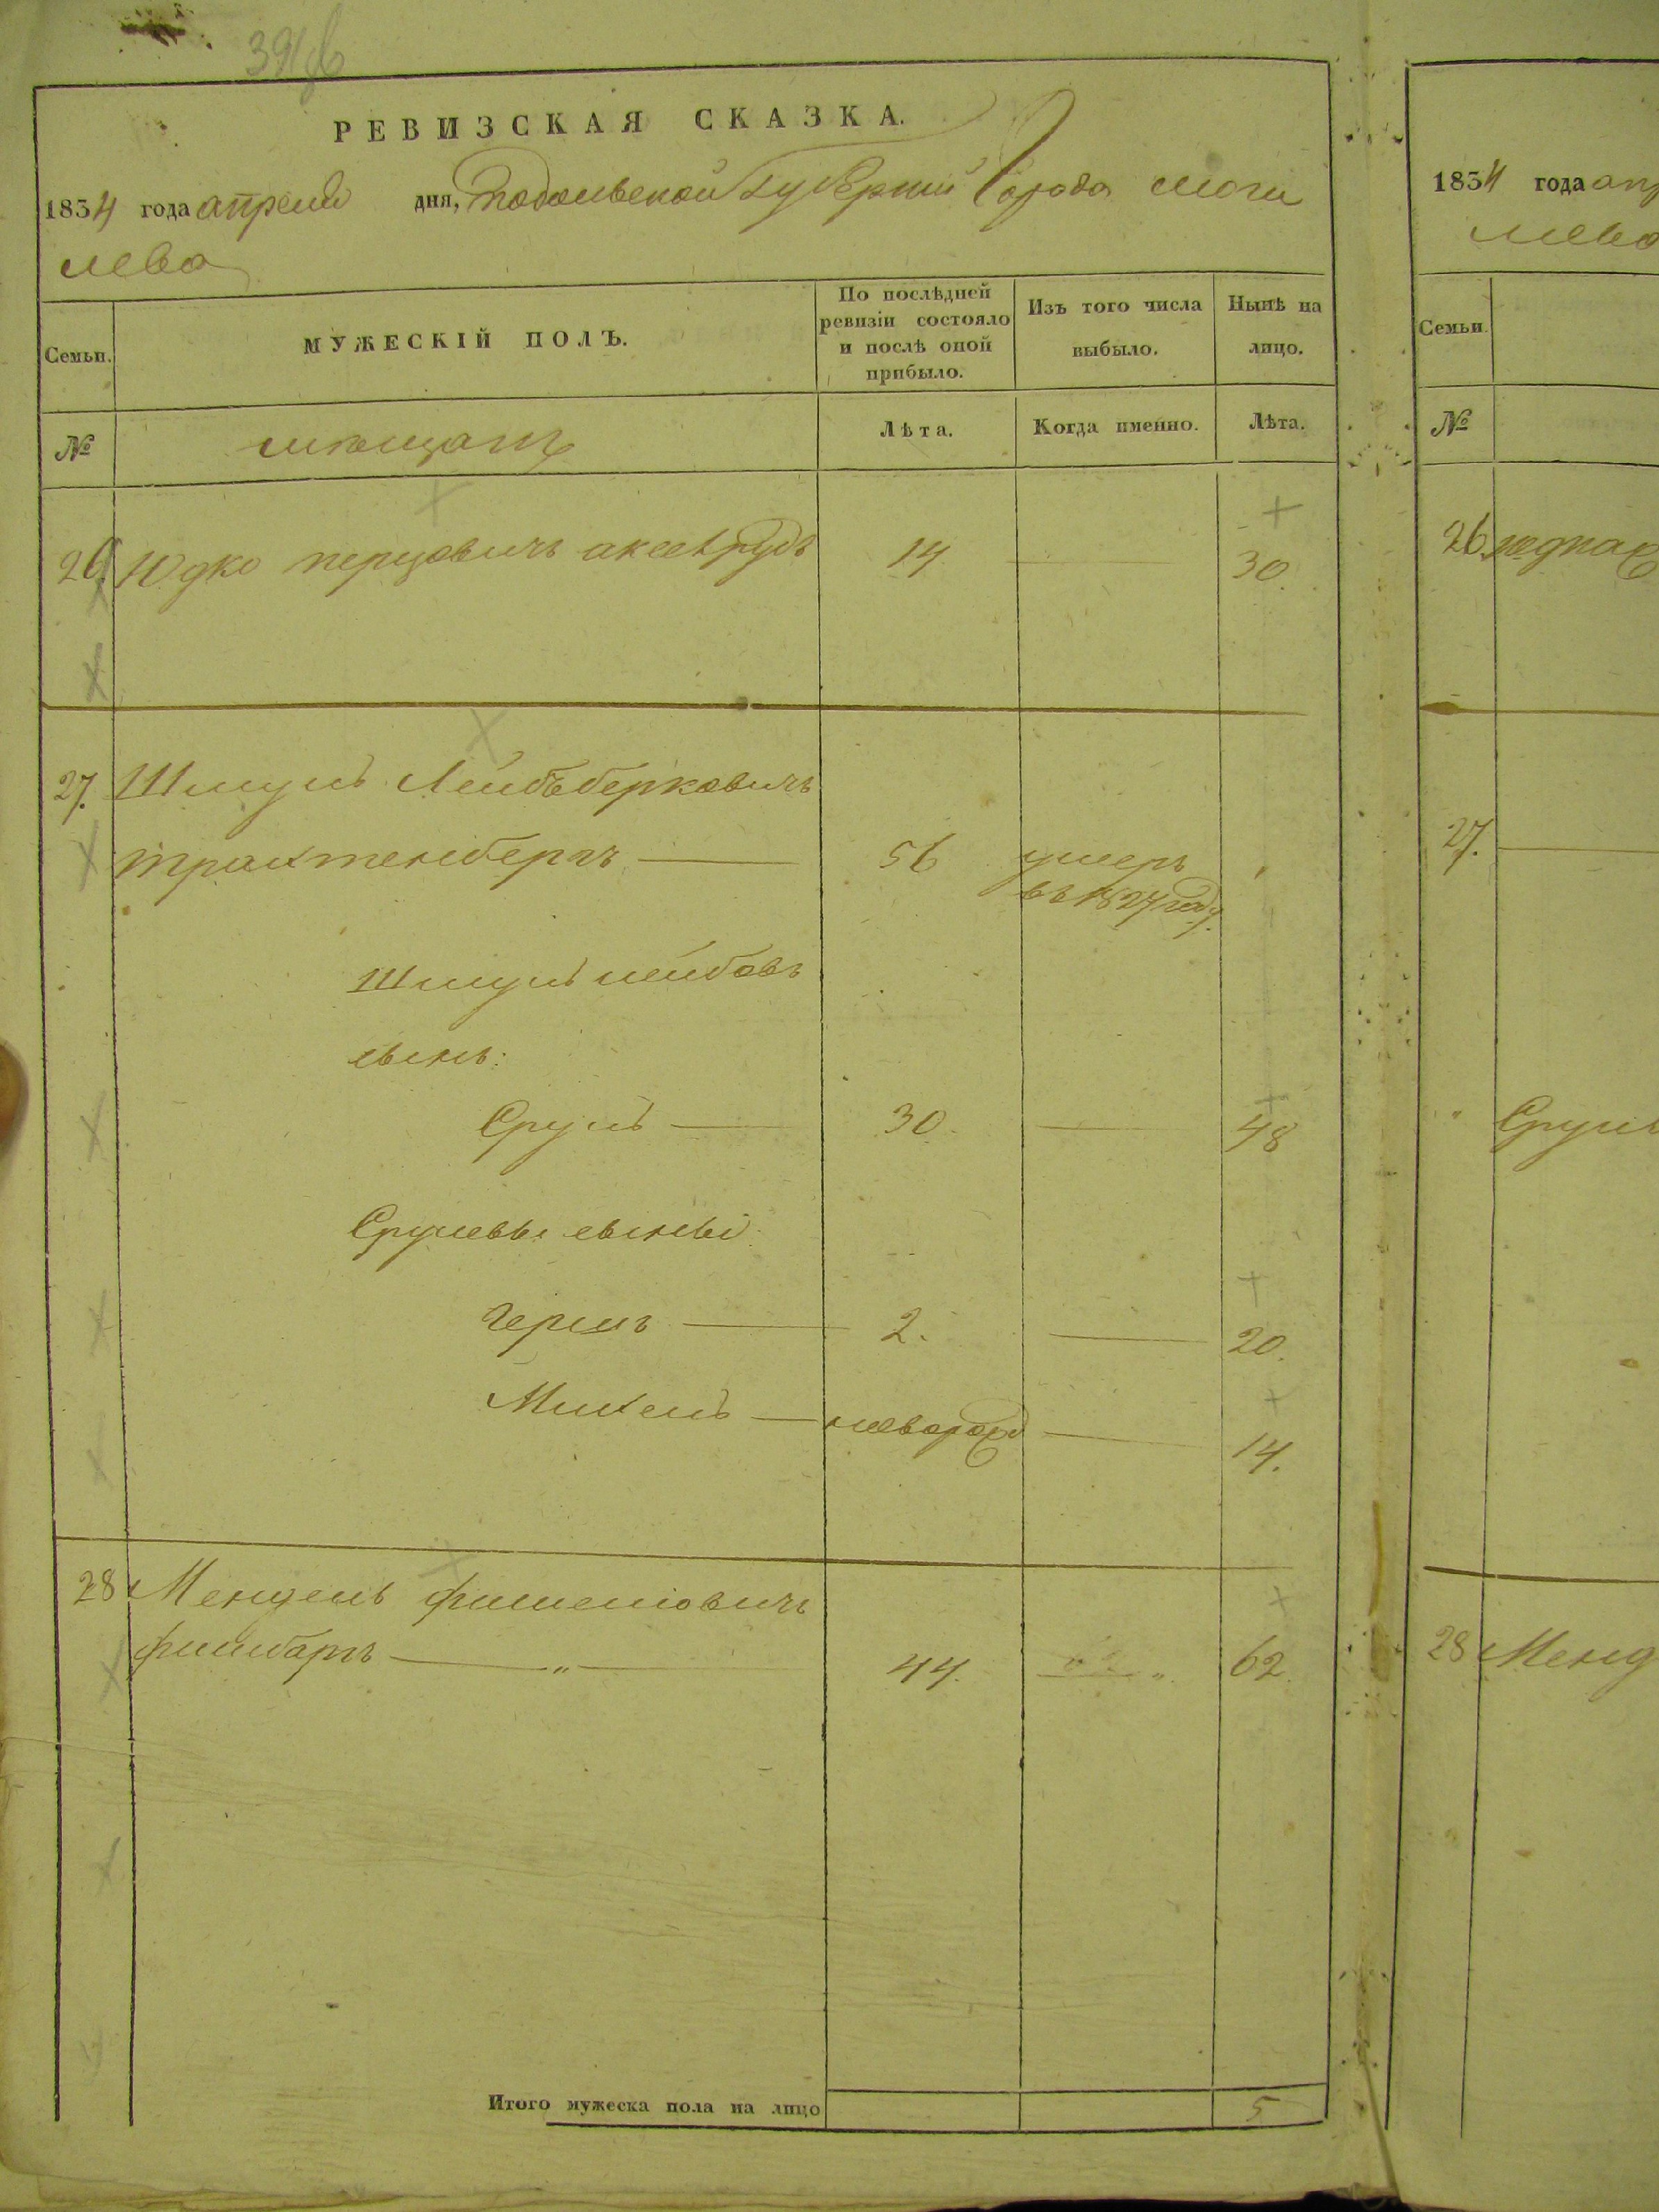 РЕВИЗСКАЯ СКАЗКА.
1834 года апреля дня, Подольской Губернии Города Моги
лева
Семьи.
МУЖЕСКІЙ ПОЛЪ.
По послѣдней
ревизіи состояло
и послѣ оной
прибыло.
Изъ того числа
выбыло.
Нынѣ на
лицо.
№
мещанъ
Лѣта.
Когда именно.
Лѣта.
26. Юдко перцовичъ аксельрудъ 14 30.
27. Шмуль Лейбъ берковичъ
трахтенбергъ 56 умеръ
въ 1827 году.
Шмуль лейбовъ
сынъ:
Сруль 30. 48
Срулевы сыны
Гершъ 2. 20.
Михель новорож 14.
28 Мендель фишелювичъ
44. 62.
Итого мужеска пола на лицо 5
1834 года апр
лева
Семьи.
№
26
27.
" Сруля
28 Менд